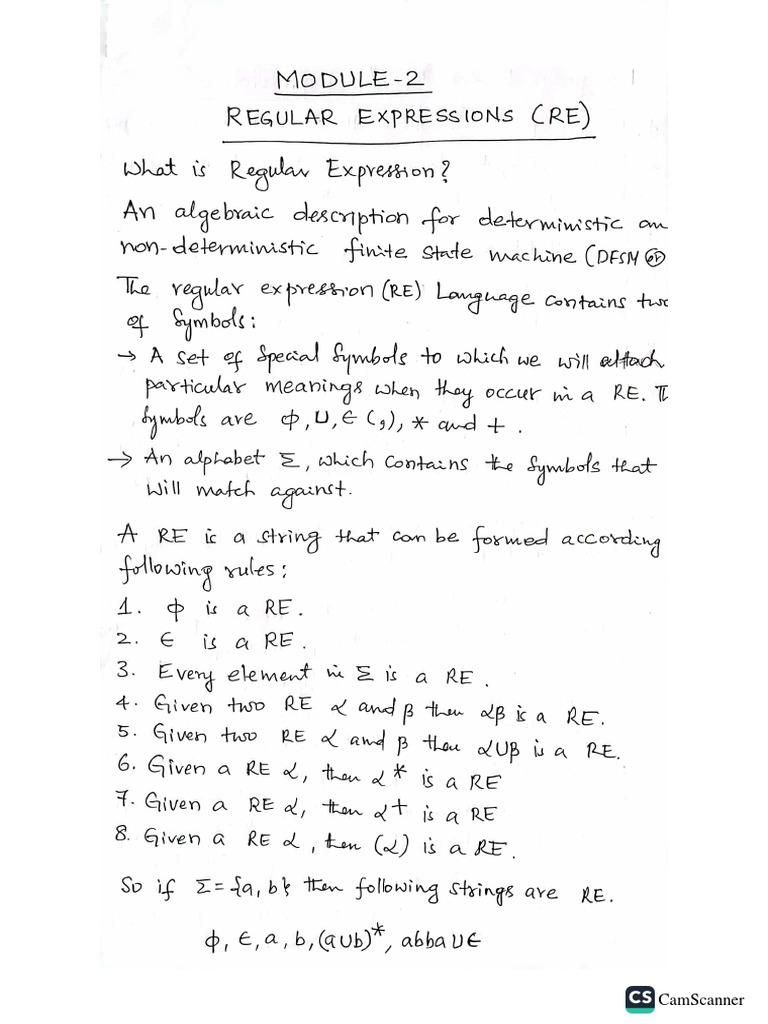 MODULE-2
REGULAR EXPRESSIONS (RE)
What is Regular Expression?
An algebraic description for deterministic an
non-deterministic finite state machine (DFSM or
The regular expression (RE) Language contains two
of Symbols:
→ A set of Special Symbols to which we will attach
particular meanings when they occur in a RE.
Symbols are ϕ, ∪, ∈ (,), * and + .
→ An alphabet Σ, which contains the Symbols that
will match against.
A RE is a string that can be formed according
following rules:
1. ϕ is a RE.
2. ∈ is a RE.
3. Every element in Σ is a RE.
4. Given two RE α and β then αβ is a RE.
5. Given two RE α and β then α∪β is a RE.
6. Given a RE α, then α* is a RE
7. Given a RE α, then α+ is a RE
8. Given a RE α, then (α) is a RE.
So if Σ={a, b} then following strings are RE.
ϕ, ∈, a, b, (a∪b)*, abba∪∈
CS CamScanner